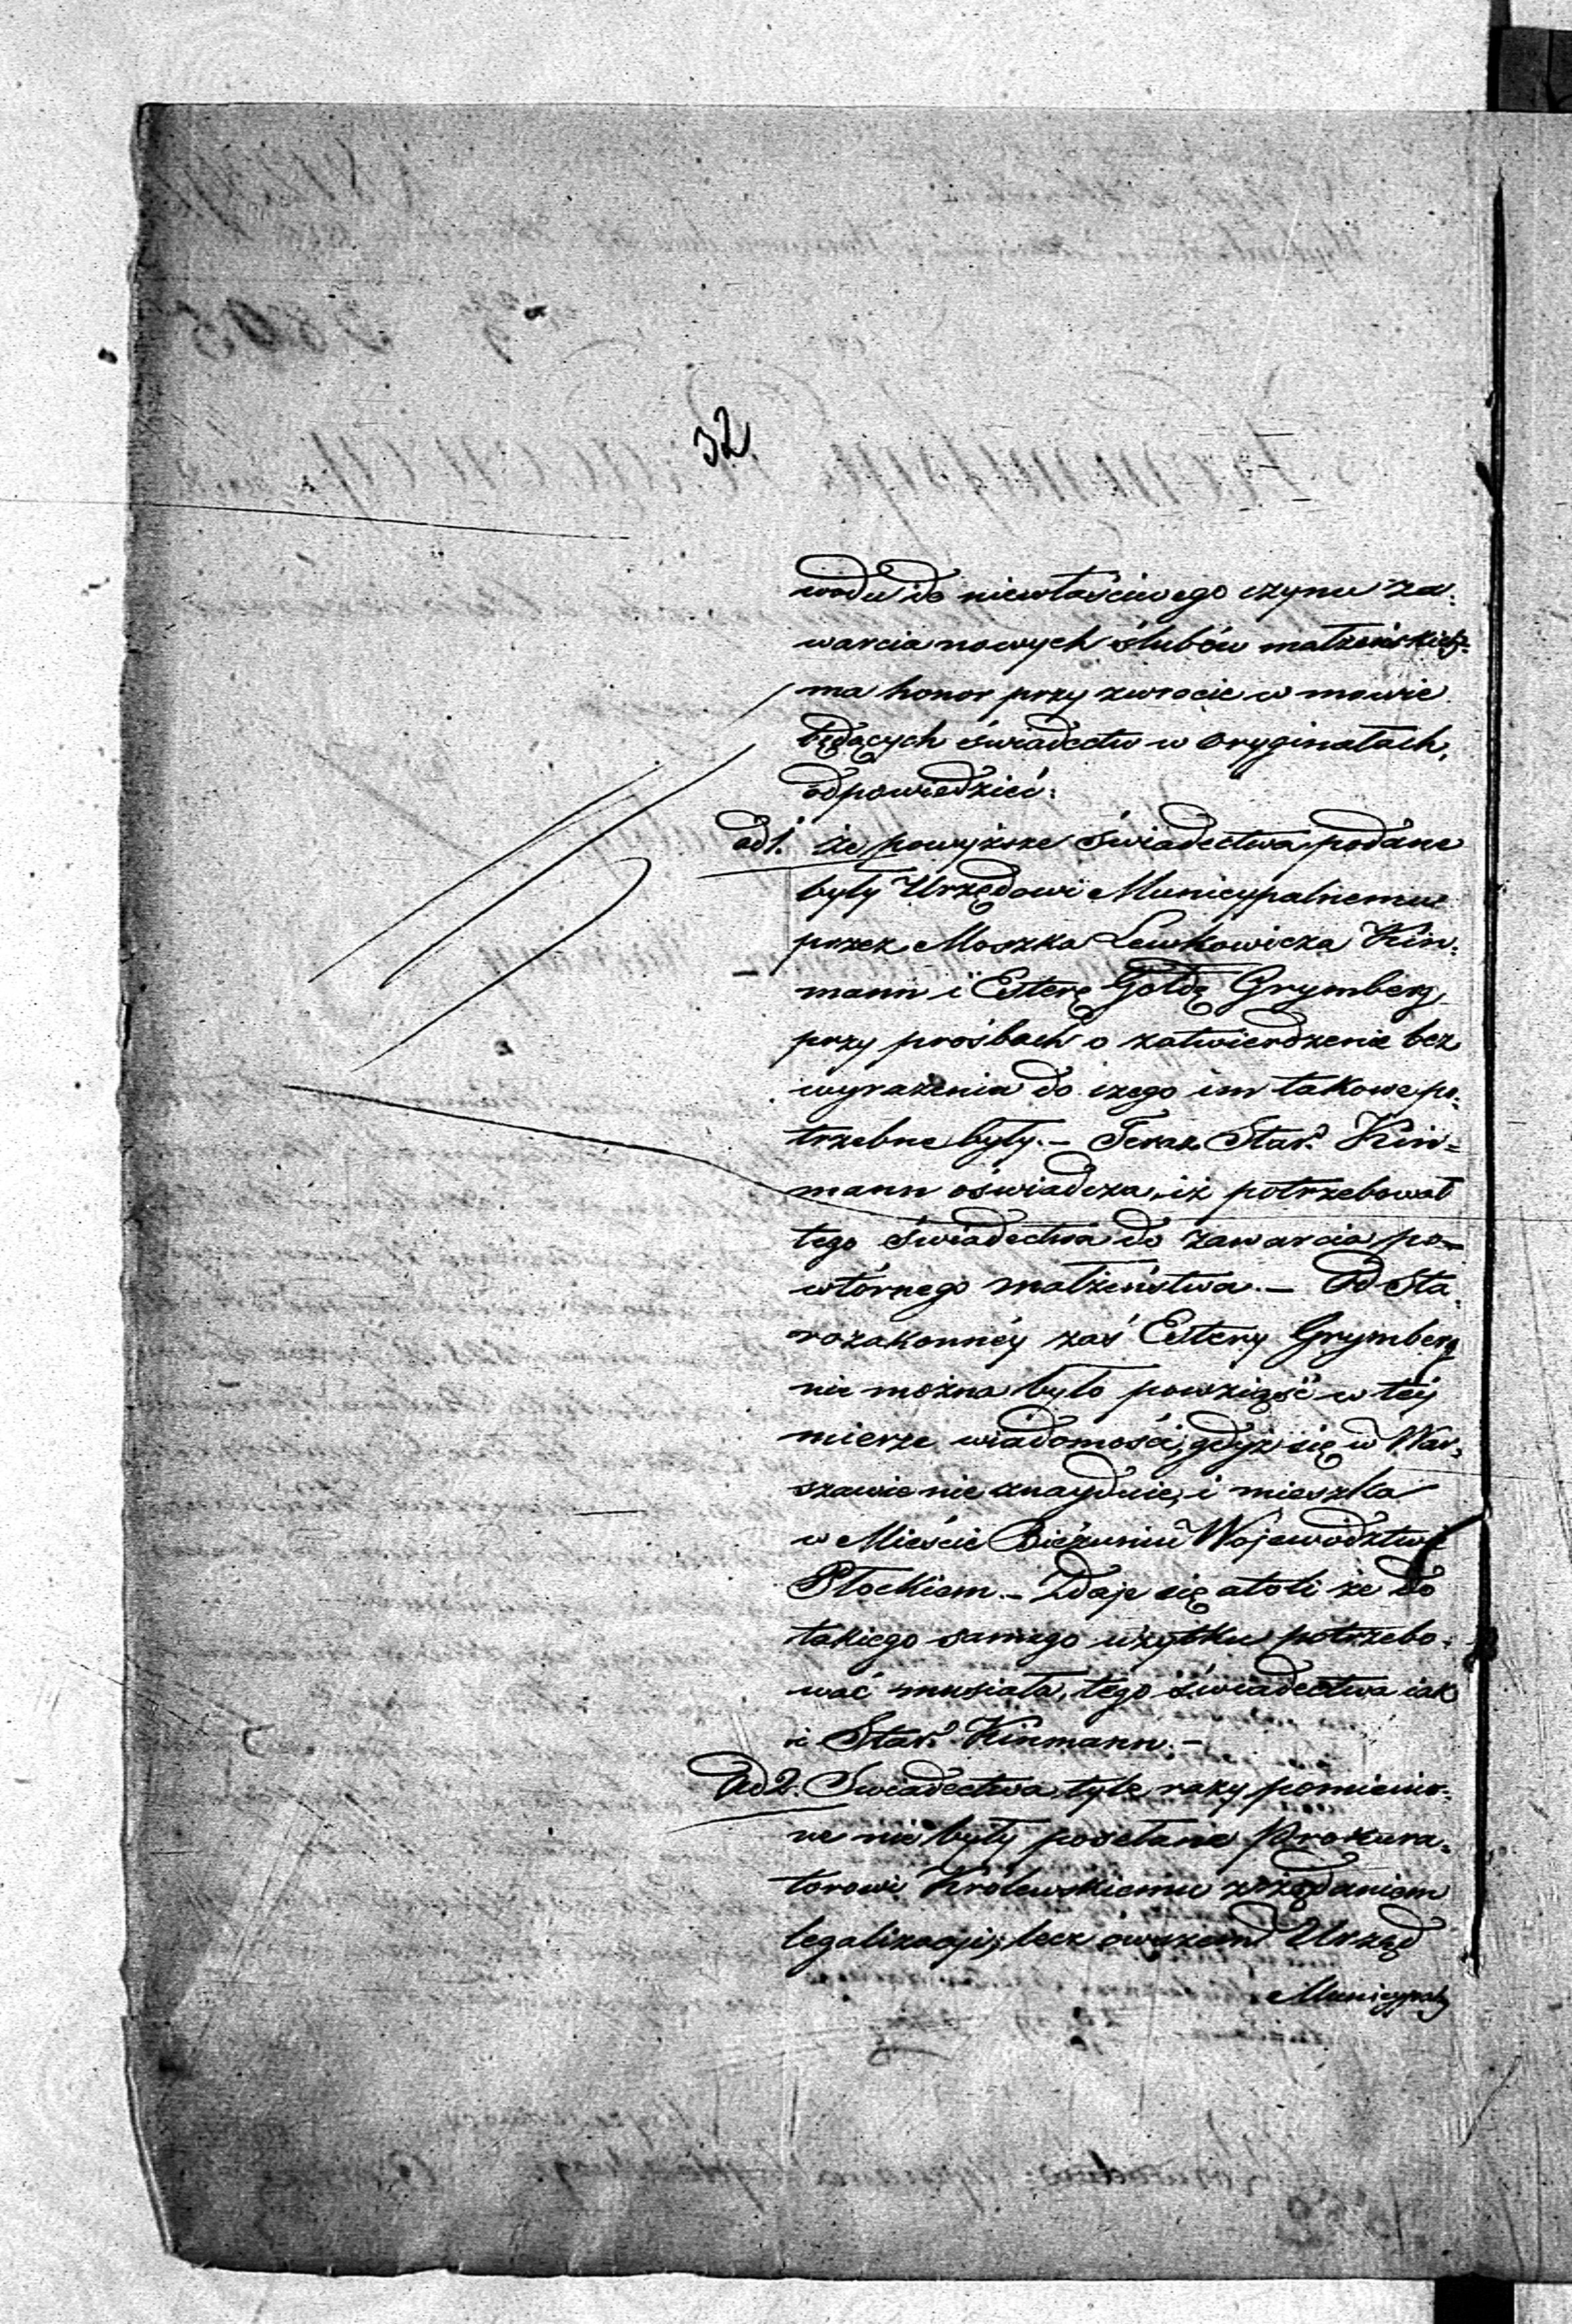 32
wodu do niewłaściwego czynu za:
warcia nowych ślubów małżeńskich:
ma honor przy zwrocie w mowie
będących świadectw w oryginałach,
odpowiedzieć:
ad 1. że powyższe świadectwa podane
były Urzędowi Municypalnemu
przez Moszka Lewkowicza Kin:
mann i Esterę Gołdę Grymberg
przy prośbach o zatwierdzenie bez
wyrażenia do czego im takowe po:
trzebne były. – Teraz Star. Kin=
mann oświadcza, iż potrzebował
tego świadectwa do zawarcia po=
wtórnego małżeństwa. – Od Sta:
rozakonnéy zaś Estery Grymberg
nie można było powziąść w téy
mierze wiadomości, gdyż się w War:
szawie nie znayduie, i mieszka
w Mieście Bieżuniu Wojewodztwie
Płockiem. – Zdaje się atoli że do
takiego samego użytku potrzebo:
wać musiała, tego świadectwa iak
i Star. Kinmann. –
Ad 2. Swiadectwa, tyle razy pomienio:
ne nie były posełane Prokura:
torowi Królewskiemu z żądaniem
legalizacji; lecz owszem Urząd
Municypalny